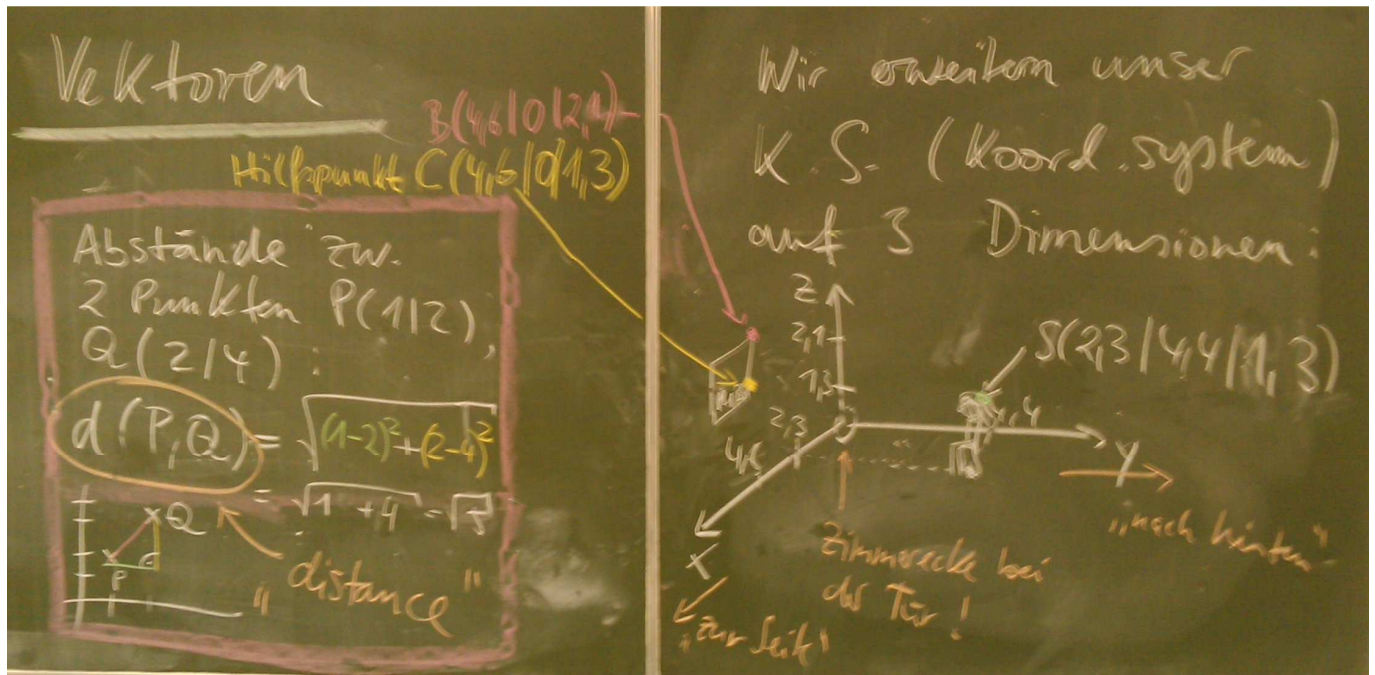 Vektoren
B(4,6|0|2,1)
Hilfspunkt C(4,6|0|1,3)
Abstände zw.
2 Punkten P(1|2),
Q(2|4):
d(P,Q) = √(1-2)²+(2-4)²
= √1+4 = √5
Q
P
"distance"
Wir erweitern unser
K.S. (Koord.system)
auf 3 Dimensionen:
Z
2,1
1,3
S(2,3|4,4|1,3)
2,3
4,6
4,4
Y
X
"nach hinten"
Zimmerecke bei
der Tür!
"zur Seite"